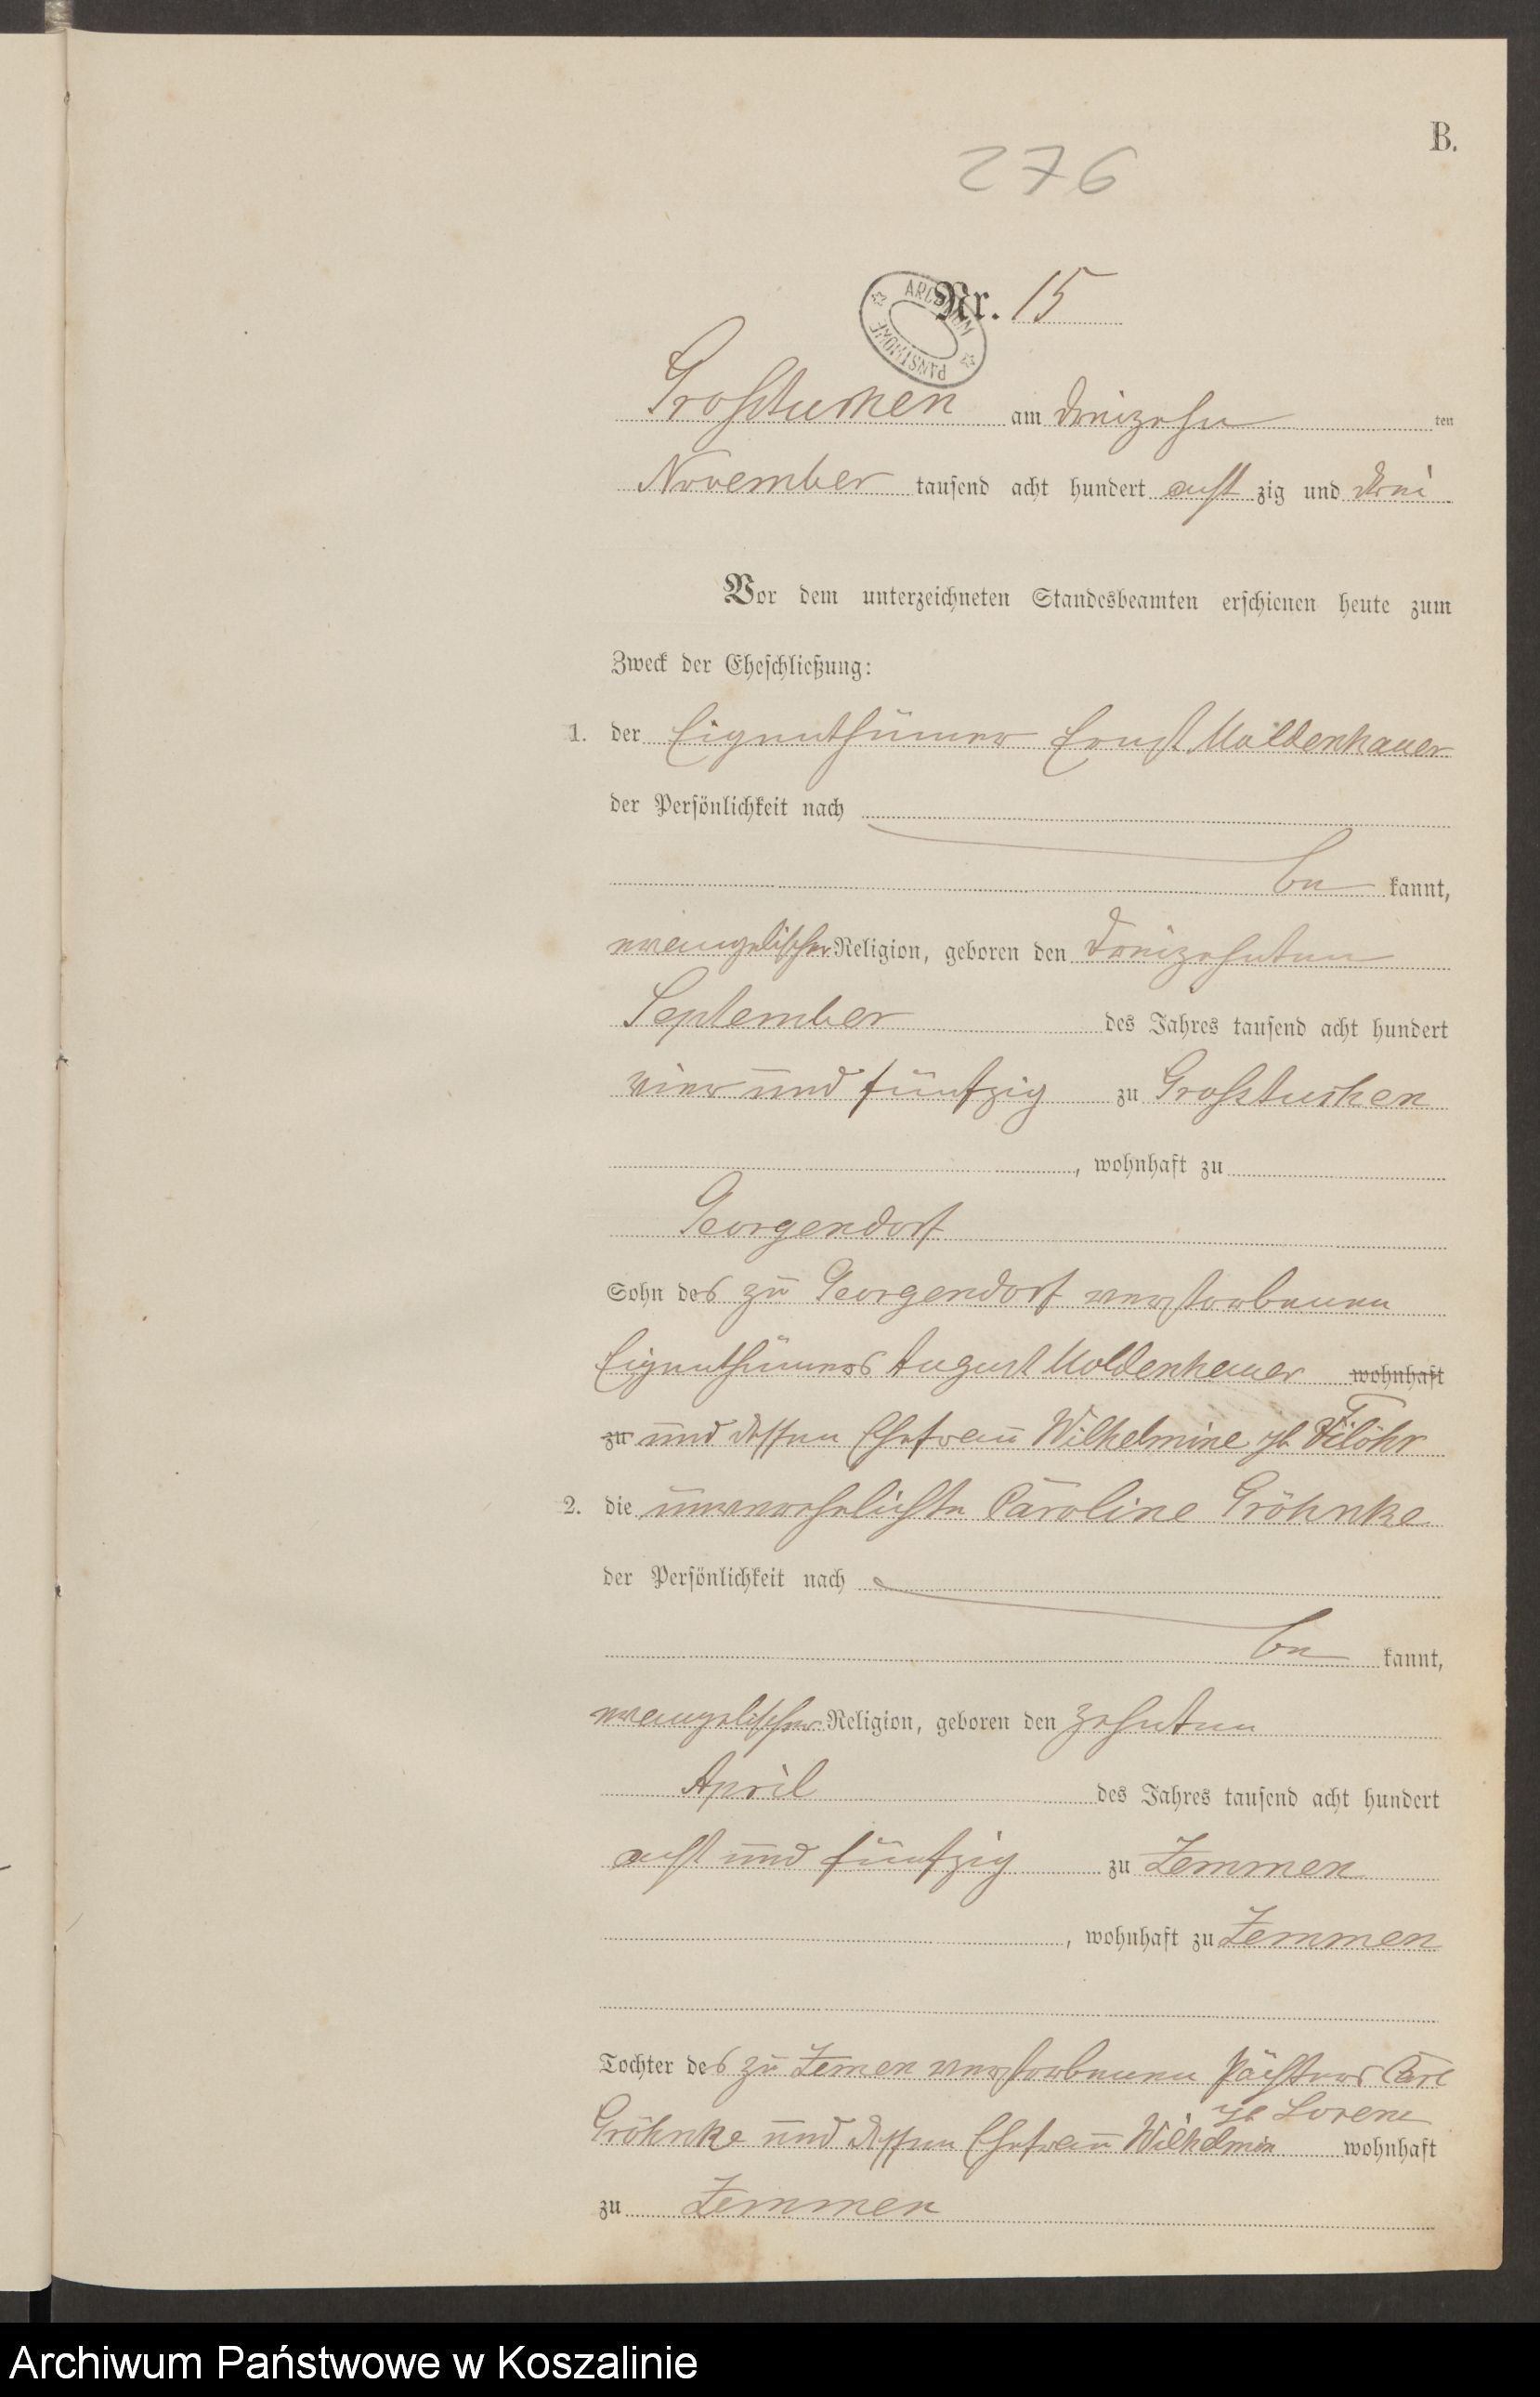 B.
276
Nr. 15
ARCHIWUM PAŃSTWOWE
am dreizehn ten
November tausend acht hundert acht zig und drei
Vor dem unterzeichneten Standesbeamten erschienen heute zum
Zweck der Eheschließung:
1. der Eigenthümer Ernst Moldenhauer
der Persönlichkeit nach
be kannt,
evangelischer Religion, geboren den dreizehnten
September des Jahres tausend acht hundert
vier und fünfzig zu Großtuchen
, wohnhaft zu
Georgendorf
Sohn des zu Georgendorf verstorbenen
Eigenthümers August Moldenhauer wohnhaft
zu und dessen Ehefrau Wilhelmine gb
2. die unverehelichte Caroline Gröhnke
der Persönlichkeit nach
be kannt,
evangelischer Religion, geboren den zehnten
April des Jahres tausend acht hundert
acht und fünfzig zu Zemmen
, wohnhaft zu Zemmen
Tochter des zu Zemen verstorbenen Pächters Carl
gb Lorenz
Gröhnke und dessen Ehefrau Wilhelmin wohnhaft
zu Zemmen
Archiwum Państwowe w Koszalinie